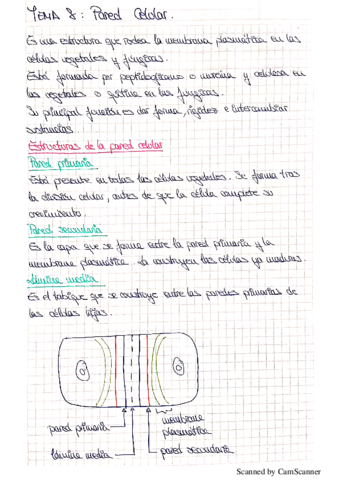 TEMA 8: Pared Celular.
Es una estructura que rodea la membrana plasmática en las
células vegetales y fúngicas.
Está formada por peptidoglicano o mureina y celulosa en
las vegetales o quitina en las fúngicas.
Su principal función es dar forma, rigidez e intercambiar
sustancias.
Estructuras de la pared celular
Pared primaria
Está presente en todas las células vegetales. Se forma tras
la división celular, antes de que la célula complete su
crecimiento.
Pared secundaria
Es la capa que se forma entre la pared primaria y la
membrana plasmática. La construyen las células ya maduras.
Lámina media
Es el tabique que se construye entre las paredes primarias de
las células hijas.
pared primaria
membrana
plasmática
lámina media
pared secundaria
Scanned by CamScanner